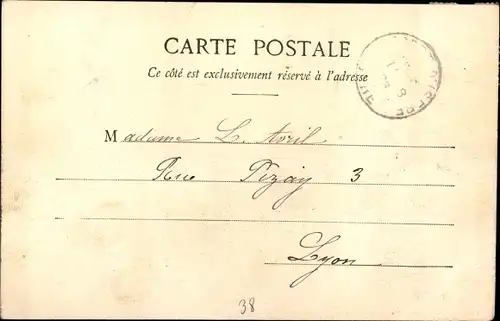 CARTE POSTALE
Ce côté est exclusivement réservé à l'adresse
Madame L. Avril
Rue Pizay 3
Lyon
38